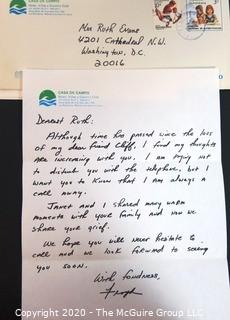 CASA DE CAMPO
Miss Ruth Evans
4201 Cathedral N.W.
Washington, D.C.
20016
CASA DE CAMPO
Dearest Ruth:
Although time has passed since the loss
of my dear friend Cliff, I find my thoughts
are increasing with you. I am trying not
to disturb you with the telephone, but I
want you to know that I am always a
call away.
Janet and I shared many warm
moments with your family and now we
share your grief.
We hope you will never hesitate to
call and we look forward to seeing
you soon.
With fondness,
Copyright 2020 - The McGuire Group LLC